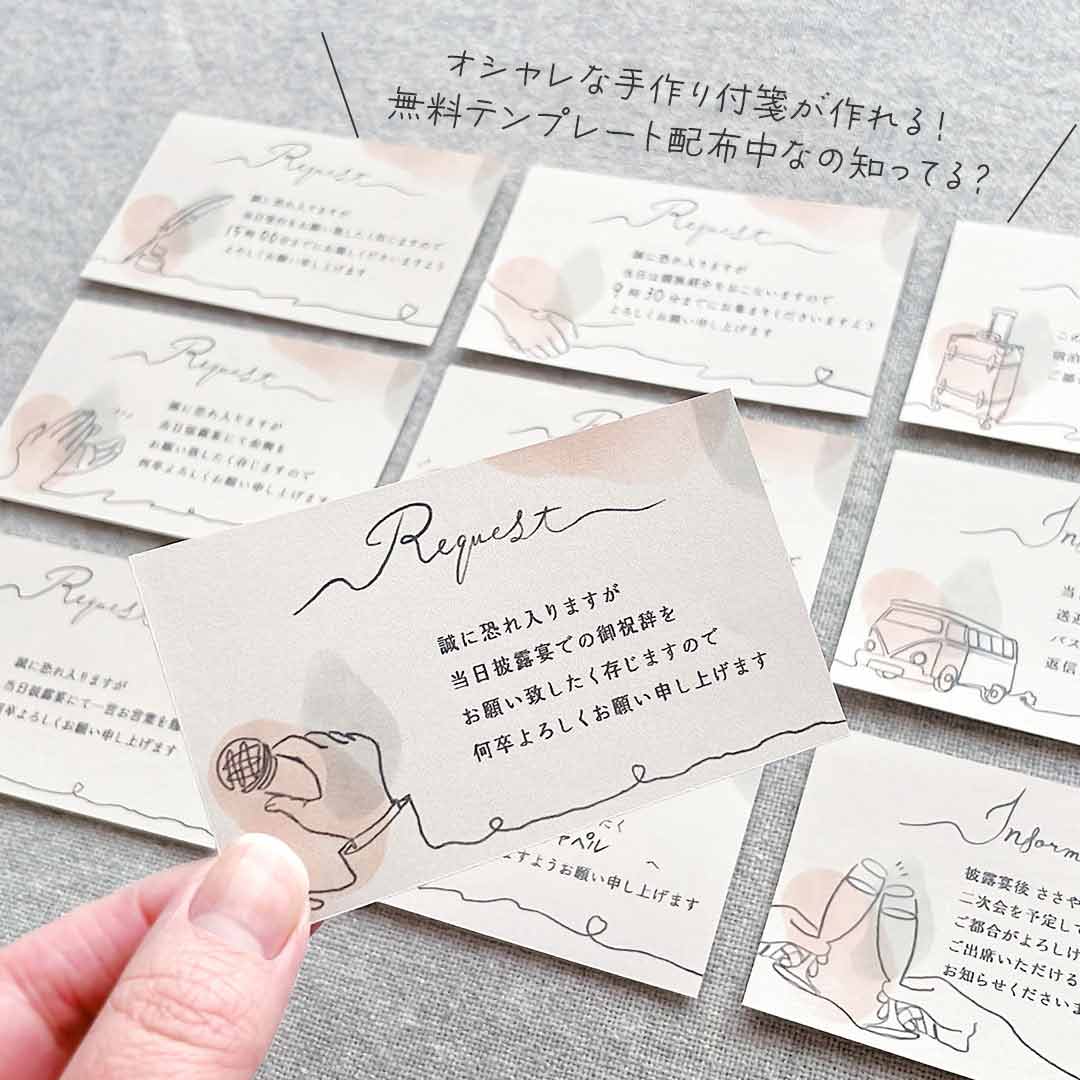 オシャレな手作り付箋が作れる!
無料テンプレート配布中なの知ってる?
Request
誠に恐れ入りますが
当日受付をお願い致したく存じますので
時 00分までにお越しくださいますよう
よろしくお願い申し上げます
Request
誠に恐れ入りますが
当日は親族紹介をおこないますので
9時 30分までにお集まりくださいますよう
よろしくお願い申し上げます
この
宿泊
ご都
Request
誠に恐れ入りますが
当日披露宴にて余興を
お願い致したく存じますので
何卒よろしくお願い申し上げます
Request
誠に恐れ入りますが
当日披露宴での御祝辞を
お願い致したく存じますので
何卒よろしくお願い申し上げます
当
送迎
バス
返信
Request
誠に恐れ入りますが
当日披露宴にて一言お言葉を
何卒よろしくお願い申し上げます
ャペル
ますようお願い申し上げます
Inform
披露宴後 ささや
二次会を予定して
ご都合がよろしけ
ご出席いただける
お知らせくださいま